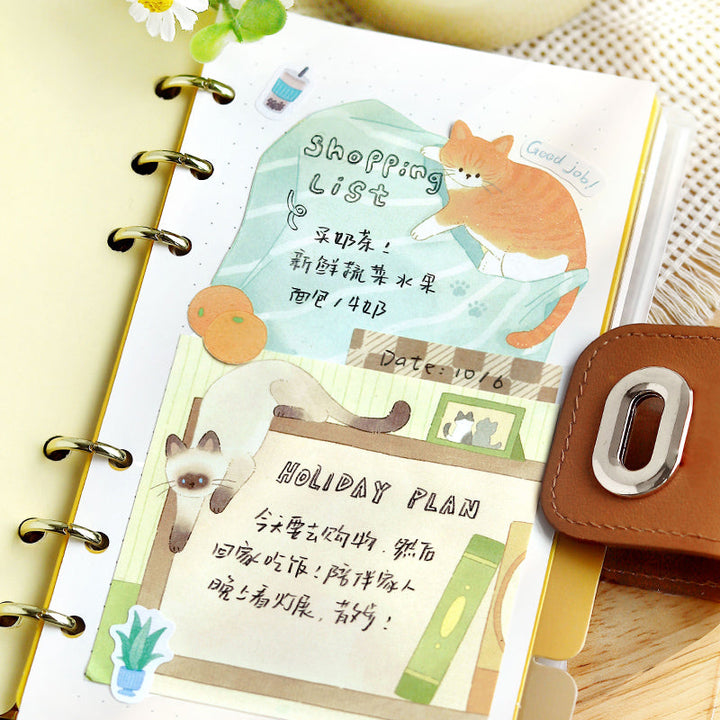 Shopping
List
Good job!
买奶茶！
新鲜蔬菜水果
面包/牛奶
Date: 10/6
HOLIDAY PLAN
今天要去购物，然后
回家吃饭！陪伴家人
晚上看灯展，散步！